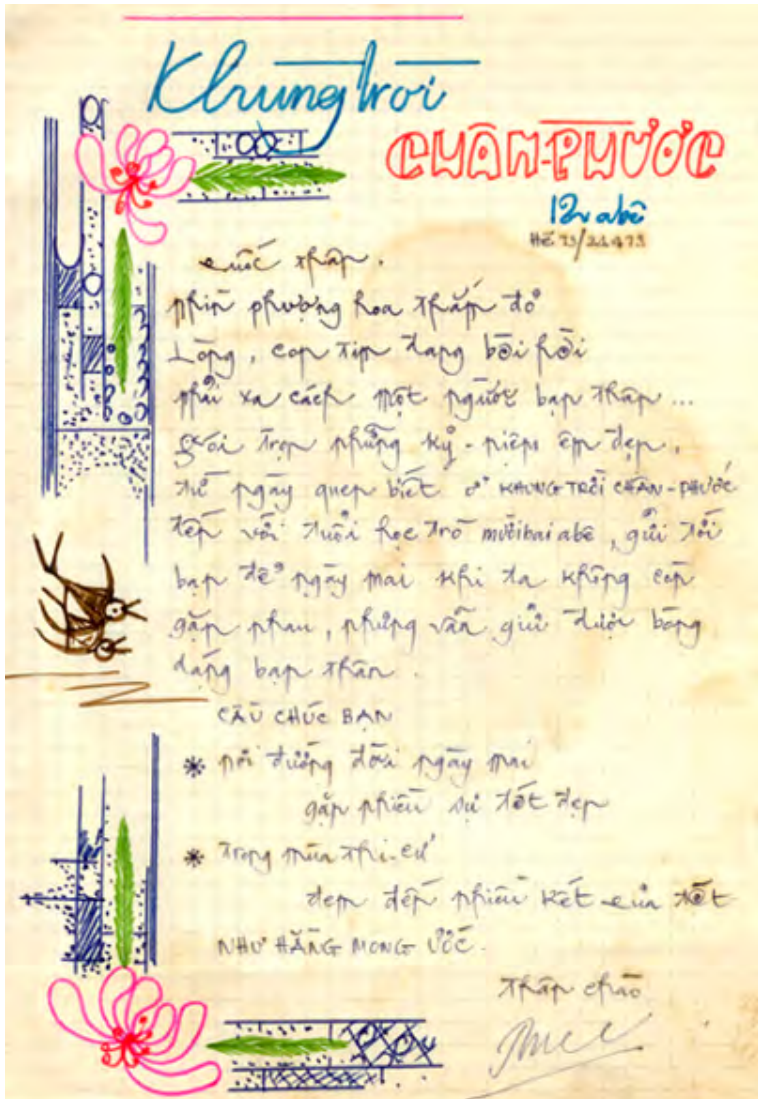 Khung trời
CHÂN-PHƯỚC
12 abê
HÈ 73/22.4.73
Quốc thân,
nhìn phượng hoa thắm đỏ
Lòng, con tim đang bồi hồi
phải xa cách một người bạn thân...
gói trọn những kỷ-niệm êm đẹp,
từ ngày quen biết ở KHUNG TRỜI CHÂN-PHƯỚC
đến với tuổi học trò mười hai abê, gửi tới
bạn để ngày mai khi ta không còn
gặp nhau, nhưng vẫn giữ được bóng
dáng bạn thân.
CẦU CHÚC BẠN
* nơi đường đời ngày mai
gặp nhiều sự tốt đẹp
* trong mùa thi-cử
đem đến nhiều kết quả tốt
NHƯ HẰNG MONG ƯỚC.
thân chào